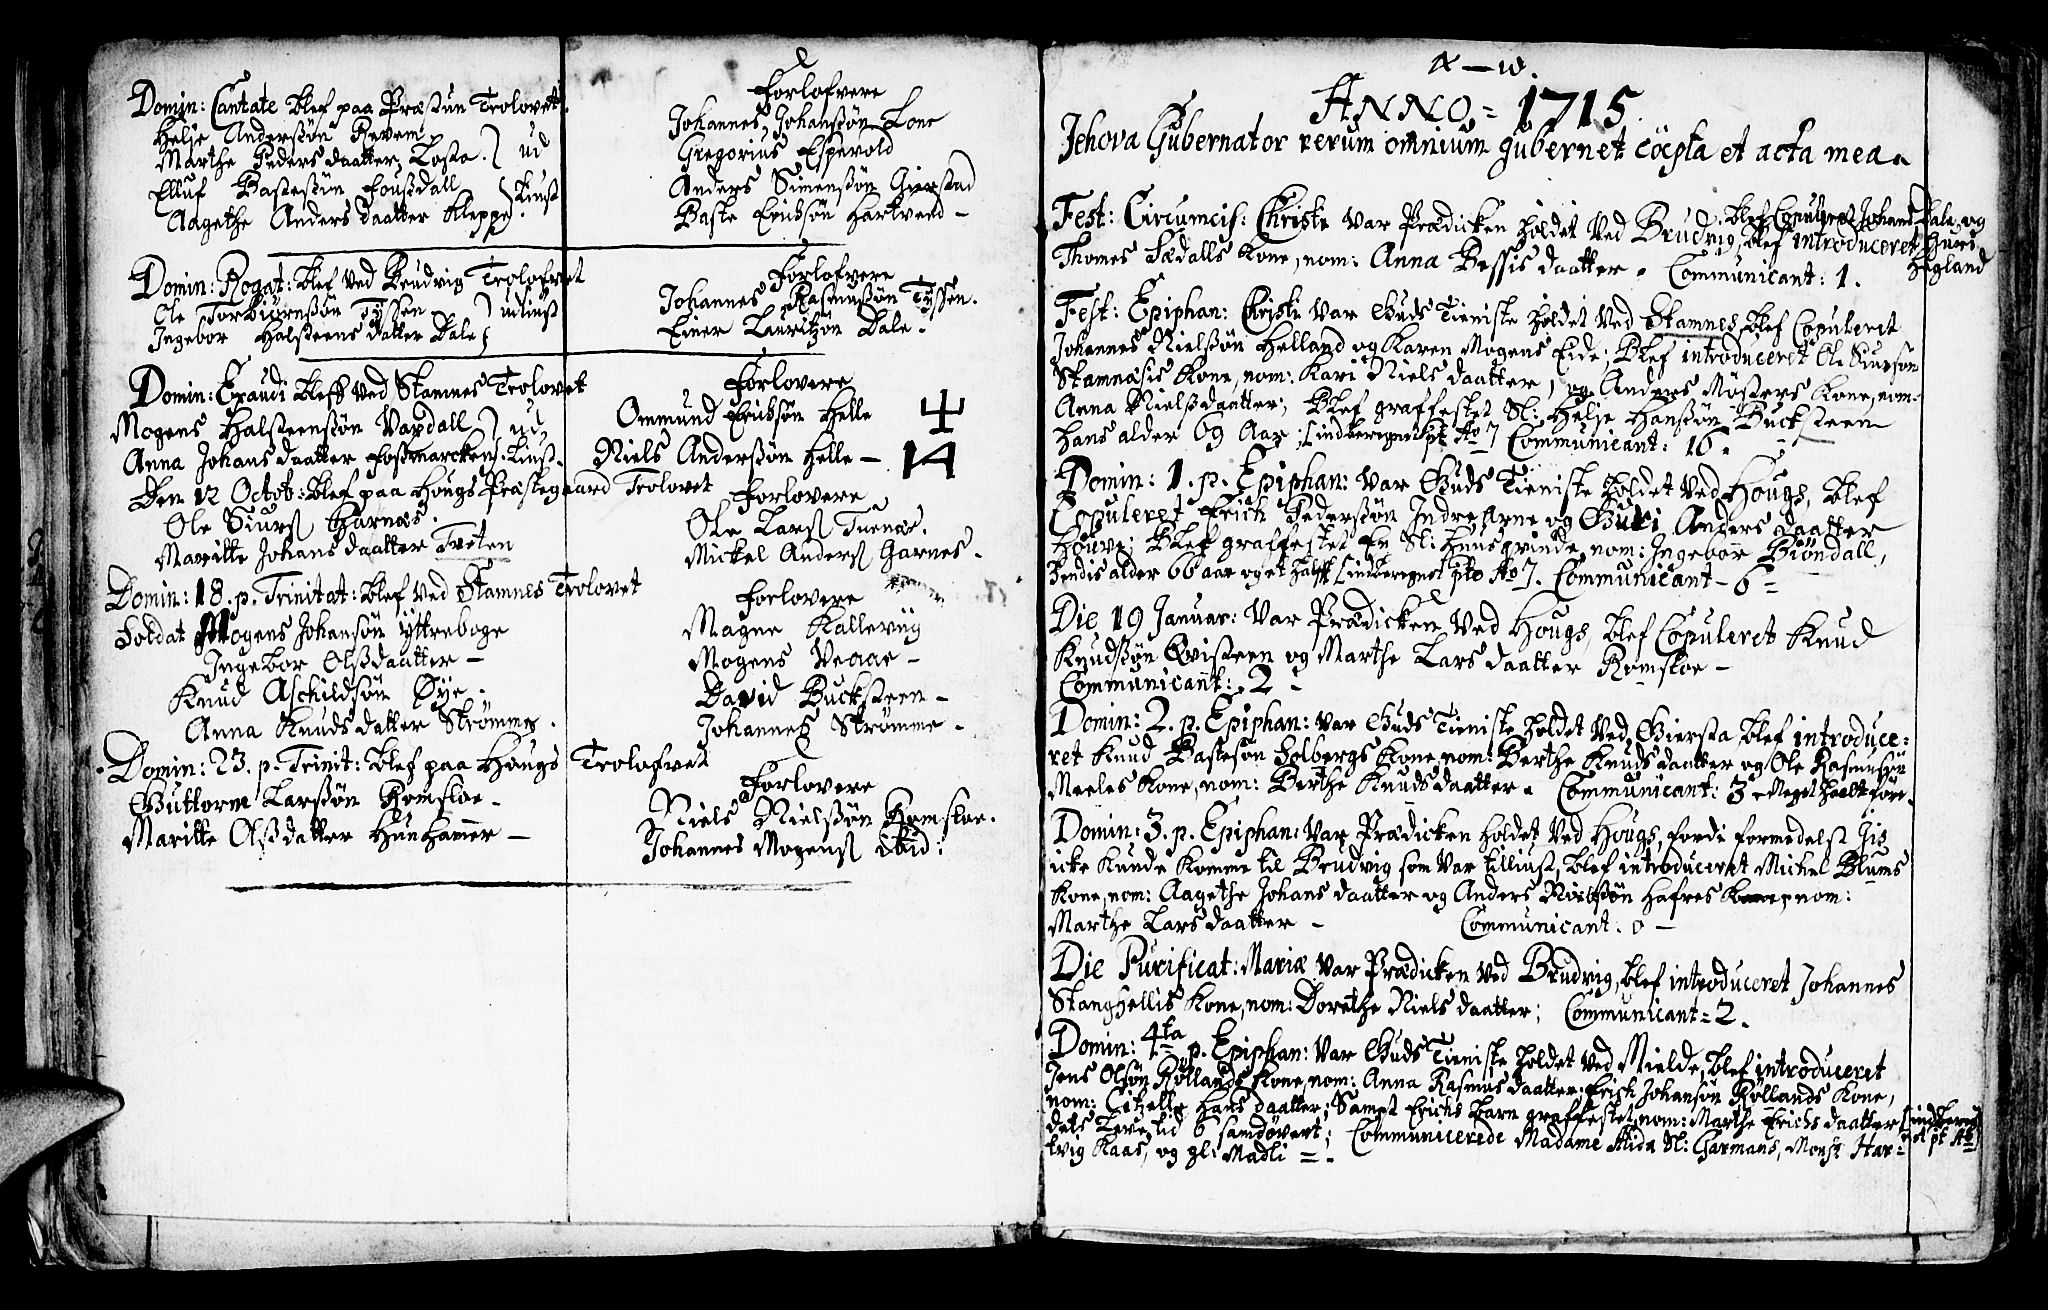 Domin: Cantate blef paa Præstun Trolovet.
Helje Anderssøn Revem
Marthe Peders daatter Losta. } ud
Elluf Bastessøn Foussdall
Aagethe Anders daatter Kleppe. } Liust
Forlofvere
Johannes Johanssøn Lone
Gregorius Espevold
Anders Simenssøn Gierstad
Baste Erichsøn Hartveed -
Domin: Rogat: blef ved Brudvig Trolofvet
Ole Torbiørnsøn Tyssen
Ingebor Halsteens datter Dale } udliust
Forlofvere
Johannes Rasmussøn Tyssen.
Einer Lauritzøn Dale.
Domin: Exaudi bleff ved Stamnes Trolovet
Mogens Halsteensøn Vardall } ud
Anna Johans daatter Fossmarcken. Liust.
Forlovere
Ommund Erichsøn Helle
Niels Anderssøn Helle -
4
14
Den 12 Octob: blef paa Hougs Præstegaard Trolovet
Ole Siurs Harnæs.
Maritte Johans daatter Tveten
Forlovere
Ole Lars Tuenæs.
Mickel Anders Garnes.
Domin: 18. p. Trinitat: blef ved Stamnes Trolovet
Soldat Mogens Johansøn Yttreboge
Ingebor Olssdaatter -
Knud Aschildsøn Øye.
Anna Knuds datter Strømme.
Forlovere
Magne Kallevüg
Mogens Veaae -
David Bucksteen -
Johannes Strømme.
Domin: 23. p. Trinit: blef paa Hougs Trolofvet
Guttorm Larssøn Romsloe.
Maritte Olss datter Hunhamer -
Forlovere
Niels Nielssøn Romsloe.
Johannes Mogens ibid:
A - w.
ANNO = 1715.
Jehova Gubernator rerum omnium gubernet cœpta et acta mea.
Fest: Circumcis: Christi var Prædicken holdet ved Brudvig, blef Copuleret Johans Dale og Gures Hegland
blef introduceret
Thomes Sædalls Kone, nom: Anna Bessis daatter. Communicant: 1.
Fest: Epiphan: Christi var Guds Tieniste holdet ved Stamnes, blef Copuleret
Johannes Nielssøn Helland og Karen Mogens Eide; blef introduceret Ole Siurson
Stamnæsis Kone, nom: Kari Niels daatter, og Anders Møsters Kone, nom.
Anna Nielssdaatter; blef graffestet Sl: Helje Hanssøn Bucksteen
hans alder 69 Aar; Communicant: 16.
Domin: 1. p. Epiphan: var Guds Tieniste holdet ved Hougs, blef
Copuleret Erich Pederssøn Indre Arne og Guri Anders daatter
Houve; blef graffestet En Sl: huusqvinde, nom: Ingebor Biøndall,
hendis alder 66 aar og et halft Communicant - 6 =
Die 19 Januar: var Prædicken ved Hougs, blef Copuleret Knud
Knudssøn Qvisteen og Marthe Lars daatter Romsloe -
Communicant: 2 -
Domin: 2. p. Epiphan: var Guds Tieniste holdet ved Giersta blef introduce:
ret Knud Bastesøn Solbergs Kone, nom: Berthe Knuds daatter og Ole Rasmussøn
Meeles Kone, nom: Berthe Knudsdaatter. Communicant: 3
Domin: 3. p. Epiphan: var Prædicken holdet ved Hougs, fordi formedelst Jis
icke kunde komme til Brudvig som var tilliust, blef introduceret Mickel Blums
Kone, nom: Aagethe Johans daatter og Anders Nielssøn Hafres Kone, nom:
Marthe Lars daatter - Communicant: 0 -
Die Purificat: Mariæ var Prædicken ved Brudvig, blef introduceret Johannes
Stanghellis Kone, nom: Dorethe Niels daatter; Communicant = 2.
Domin: 4ta p. Epiphan: var Guds Tieniste holdet ved Mielde, blef introduceret
Jens Olsøn Røllands Kone, nom: Anna Rasmus daatter; Erich Johansøn Røllands Kone,
nom: Citzelle Hans daatter; Sampt Erichs barn graffestet, nom: Marthe Erichs daatter
dets Leve tid 6 samdøvert; Communicerede Madame Alida Sl: Garmans, Mons: Har=
tvig Kaas, og gl: Madli =.